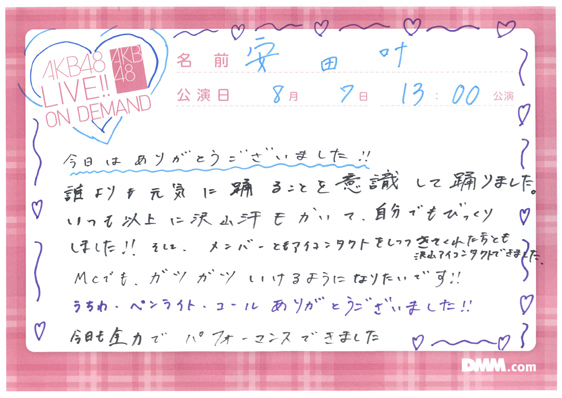 AKB48
LIVE!!
ON DEMAND
AKB
48
名前 安田叶
公演日 8月 7日 13:00 公演
今日はありがとうございました!!
誰よりも元気に踊ることを意識して踊りました。
いつも以上に沢山汗もかいて、自分でもびっくり
しました!! そして、メンバーともアイコンタクトをしつつ きてくれた方とも
沢山アイコンタクトできました。
MCでも、ガツガツいけるようになりたいです!!
うちわ・ペンライト・コールありがとうございました!!
今日も全力でパフォーマンスできました
DMM.com